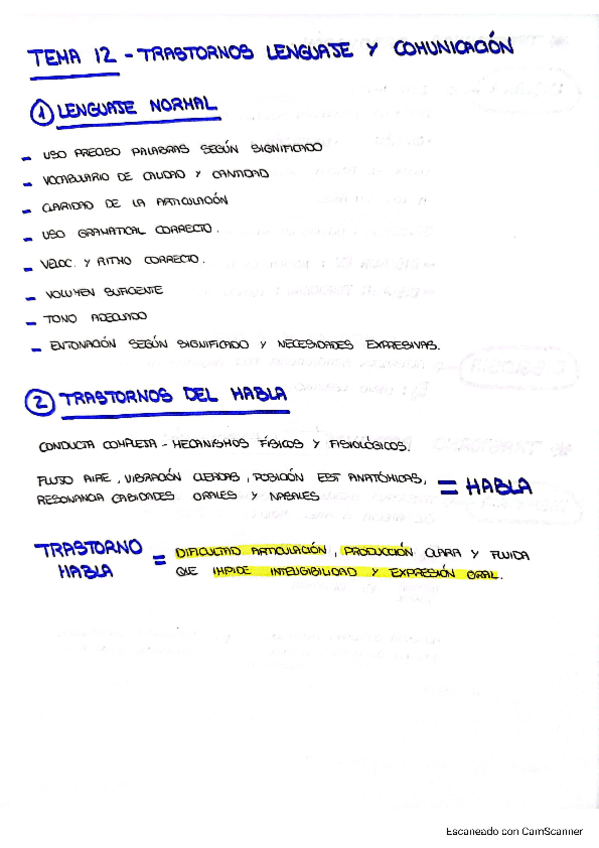 TEMA 12 - TRASTORNOS LENGUAJE Y COMUNICACIÓN
1 LENGUAJE NORMAL
- USO PRECISO PALABRAS SEGÚN SIGNIFICADO
- VOCABULARIO DE CALIDAD Y CANTIDAD
- CLARIDAD DE LA ARTICULACIÓN
- USO GRAMATICAL CORRECTO.
- VELOC. Y RITMO CORRECTO.
- VOLUMEN SUFICIENTE
- TONO ADECUADO
- ENTONACIÓN SEGÚN SIGNIFICADO Y NECESIDADES EXPRESIVAS.
2 TRASTORNOS DEL HABLA
CONDUCTA COMPLEJA - MECANISMOS FÍSICOS Y FISIOLÓGICOS.
FLUJO AIRE, VIBRACIÓN CUERDAS, POSICIÓN EST ANATÓMICAS,
RESONANCIA CABIDADES ORALES Y NASALES = HABLA
TRASTORNO HABLA = DIFICULTAD ARTICULACIÓN, PRODUCCIÓN CLARA Y FLUIDA
QUE IMPIDE INTELIGIBILIDAD Y EXPRESIÓN ORAL.
Escaneado con CamScanner